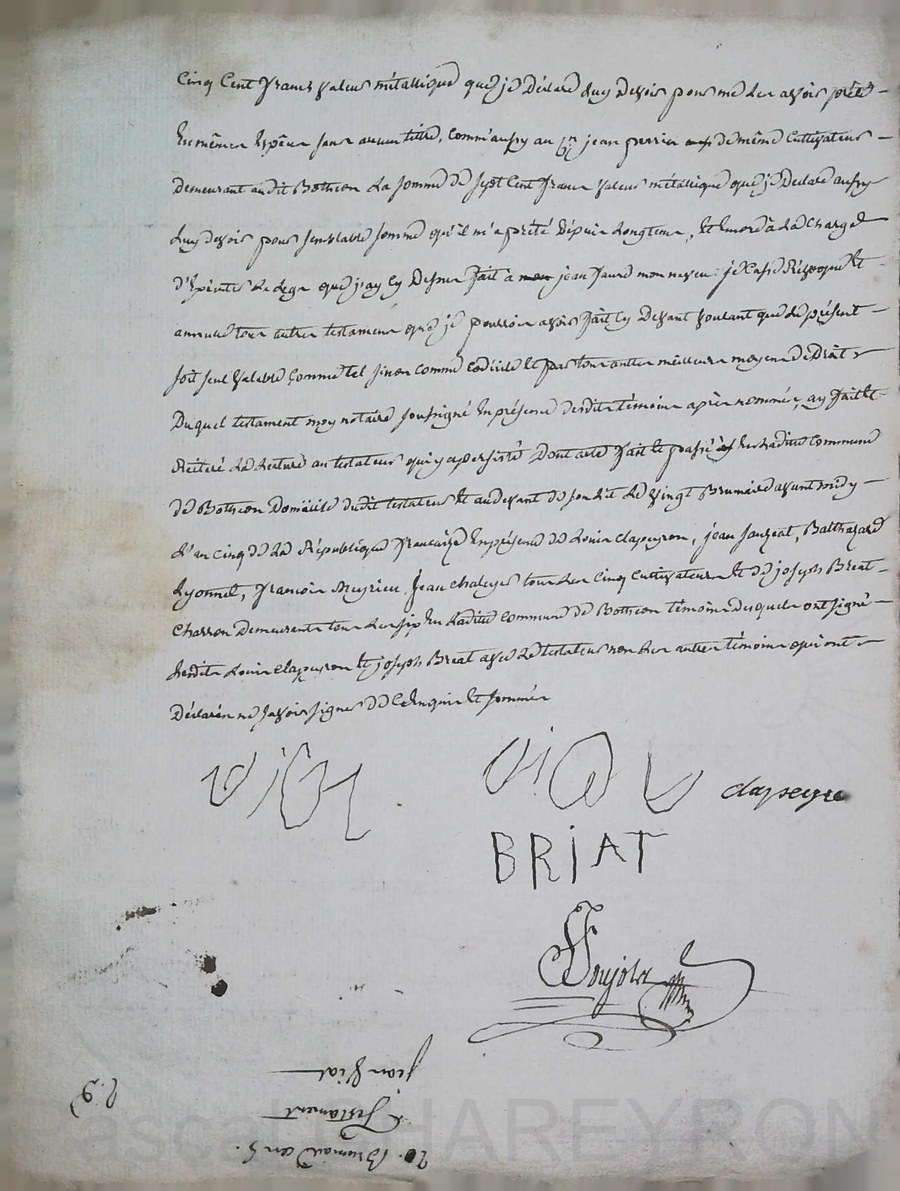 Cinq Cent francs valeur métallique que je déclare luy devoir pour me les avoir prêté
En mêmes Espêces sans aucun titre, comm'aussy au Cn jean perrier de même Cultivateur
demeurant audit Botheon la somme de sept Cent francs valeur métallique que je declare aussy
luy devoir pour semblable somme qu'il m'a prêté depuis longtems, Et Encor à la charge
du legs que j'ay cy dessus fait à jean faure mon neveu: je Casse Révoque Et
annulle tous autres testaments que je pourrois avoir fait cy devant voulant que le présent
soit seul valable comme tel sinon comme codicile Et par tous autres meilleurs moyens de droit
Duquel testament moy notaire soussigné En présence desdits témoins après nommés, ay fait Et
réiteré la lecture au testateur qui y a persisté Dont acte fait Et passé En ladite Commune
de Botheon Domicile dudit testateur Et au devant de son lit Le vingt Brumaire avant midy
L'an cinq de la République francaise En présence de Louis clapeyron, jean sauzeat, Balthazard
Lyonnet, francois Meyrieu, Jean chaleyer tous les Cinq Cultivateurs Et de joseph Breat
Charron Demeurants tous les six En laditte Commune de Botheon témoins desquels ont signé
lesdits Louis clapeyron Et joseph Breat avec le testateur non les autres témoins qui ont
Déclarés ne savoir signer de ce Enquis Et sommés
vial
clapeyro
BRIAT
20. Brumaire an 5.
Testament
jean Vial
Pascal CHAREYRON